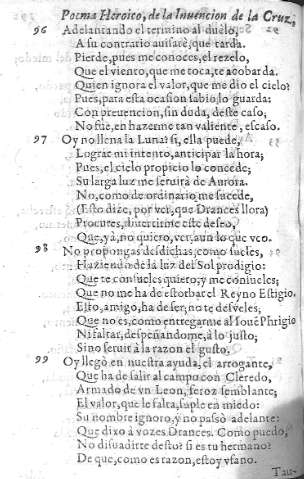 Poema Heroico, de la Inuencion de la Cruz,
96 Adelantando el termino al duelo,
A su contrario auisarè, que tarda.
Pierde, pues me conoces, el rezelo,
Que el viento, que me toca, te acobarda.
Quien ignora el valor, que me dio el cielo?
Pues, para esta ocasion sabio, lo guarda:
Con preuencion, sin duda, deste caso,
No fùe, en hazerme tan valiente, escaso.
97 Oy no llena la Luna: si, ella puede,
Lograr mi intento, anticipar la hora;
Pues, el cielo propicio lo concede;
Su larga luz me seruirà de Aurora.
No, como de ordinario me sucede,
(Esto dize, por ver, que Drances llora)
Procures, diuertirme este desseo,
Que, yà, no quiero, ver, aun lo que veo.
98 No propongas desdichas, como sueles,
Haziendo de la luz del Sol prodigio:
Que te consueles quieto, y me consueles;
Que no me ha de estorbar el Reyno Estigio,
Esto, amigo, ha de ser, no te desveles;
Que no es, como entregarme al Iouè Phrigio
Ni faltar, despeñandome, à lo justo;
Sino seruir à la razon el gusto,
99 Oy llegò en nuestra ayuda, el arrogante,
Que ha de salir al campo con Cleredo,
Armado de vn Leon, feroz semblante;
El valor, que le falta, suple en miedo:
Su nombre ignoro, y no passò adelante:
Que dixo à vozes Drances. Como puedo,
No disuadirte desto? si es tu hermano?
De que, como es razon, estoy vfano.